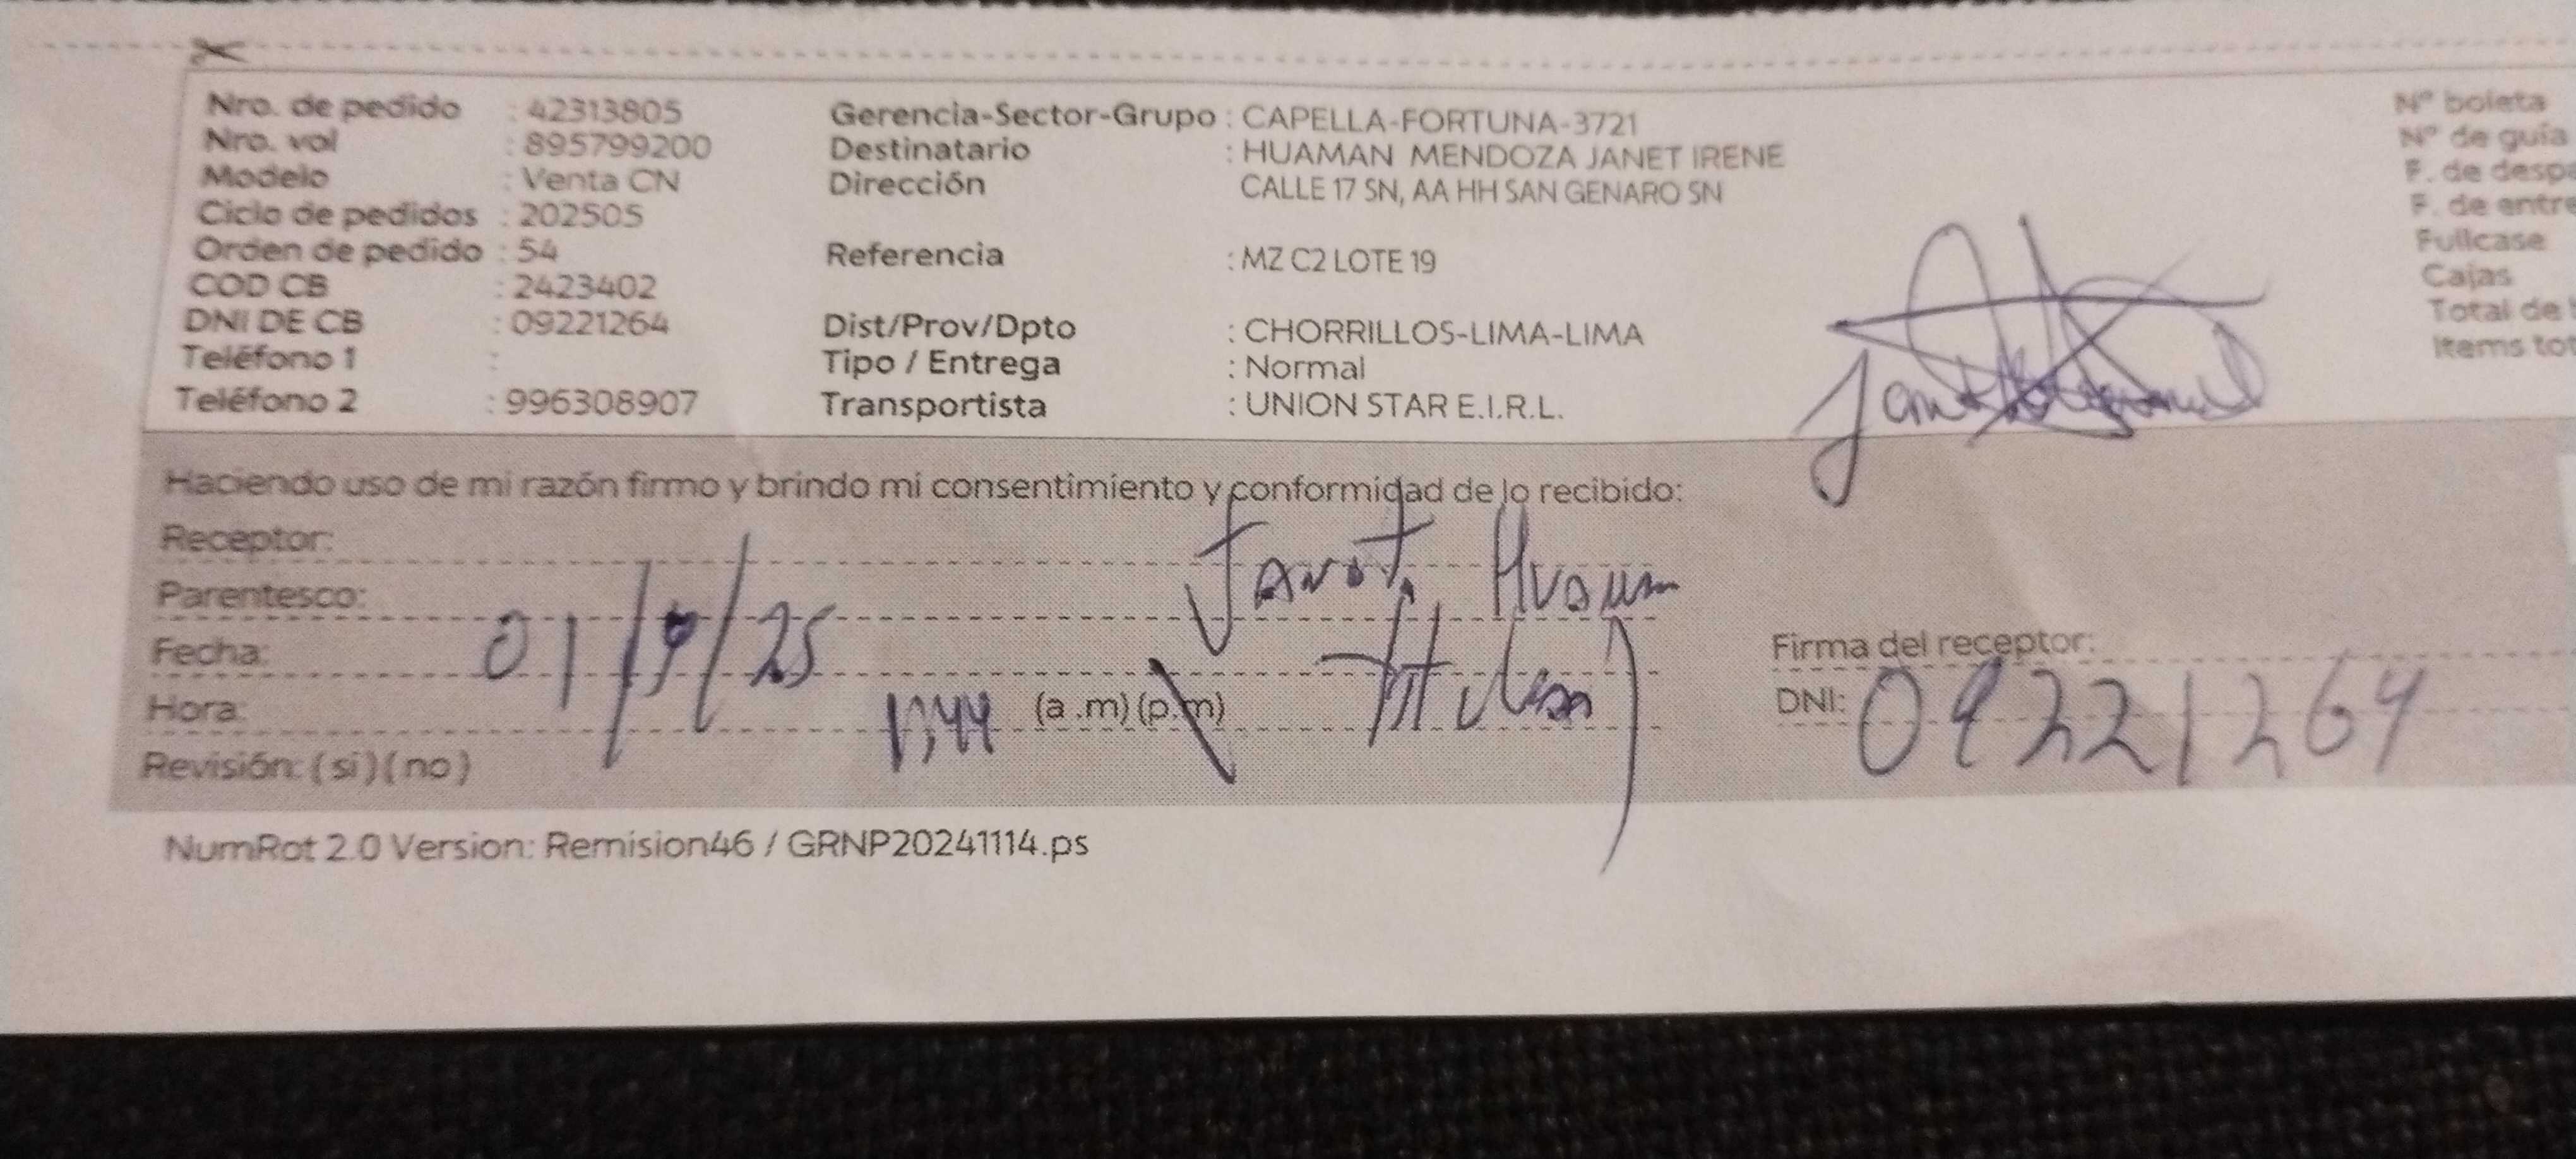 Nro. de pedido : 42313805
Nro. vol : 895799200
Modelo : Venta CN
Ciclo de pedidos : 202505
Orden de pedido : 54
COD CB : 2423402
DNI DE CB : 09221264
Teléfono 1 :
Teléfono 2 : 996308907
Gerencia-Sector-Grupo : CAPELLA-FORTUNA-3721
Destinatario : HUAMAN MENDOZA JANET IRENE
Dirección CALLE 17 SN, AA HH SAN GENARO SN
Referencia : MZ C2 LOTE 19
Dist/Prov/Dpto : CHORRILLOS-LIMA-LIMA
Tipo / Entrega : Normal
Transportista : UNION STAR E.I.R.L.
Nº boleta
Nº de guía
F. de desp
F. de entre
Fullcase
Cajas
Total de
Items tot
Haciendo uso de mi razón firmo y brindo mi consentimiento y conformidad de lo recibido:
Receptor:
Parentesco:
Fecha: 01/ /25
Hora: (a .m) (p.m)
Revisión: (si) (no)
Firma del receptor:
DNI: 09221264
NumRot 2.0 Version: Remision46 / GRNP20241114.ps